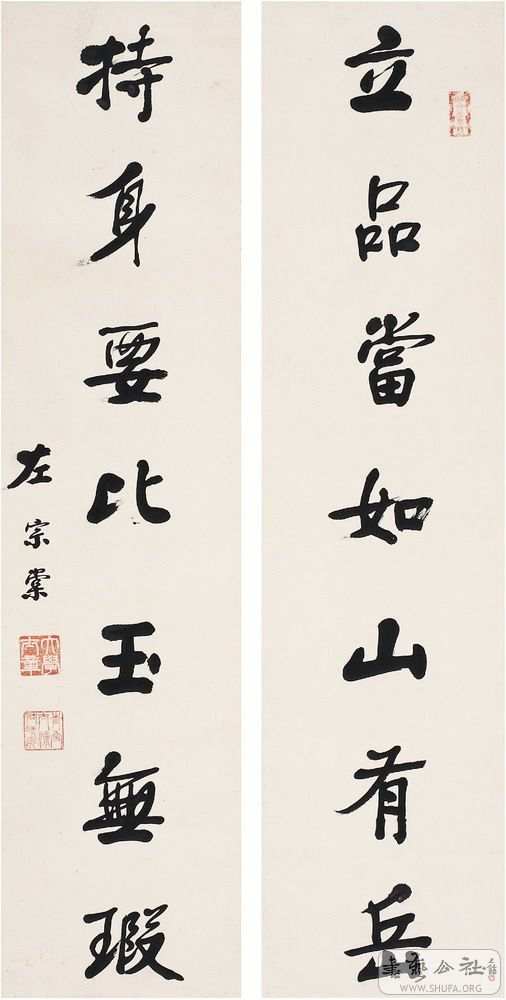 立品當如山有岳
持身要比玉無瑕
左宗棠
大學士章
書藝公社
WWW.SHUFA.ORG